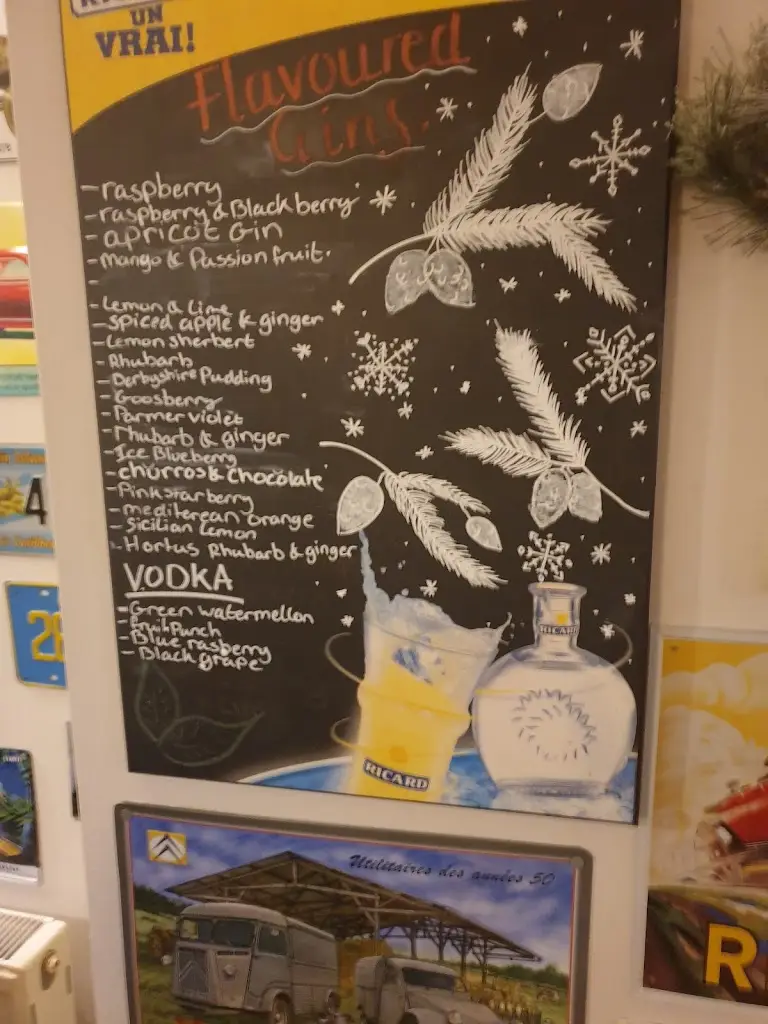 UN
VRAI!
Flavoured
Gins.
-raspberry
-raspberry & Blackberry
-apricot Gin
-mango & Passion fruit.
-
-Lemon & Lime
-spiced apple & ginger
-Lemon sherbert
-Rhubarb
-Derbyshire Pudding
-Goosberry
-Parmer violet
-Rhubarb & ginger
-Ice Blueberry
-churros & chocolate
-Pinkstarberry
-mediterean orange
-sicilian Lemon
-Hortus Rhubarb & ginger
VODKA
-Green watermellon
-fruit Punch
-Blue rasberry
-Black grape
RICARD
RICARD
4
2
Utilitaires des années 50
R